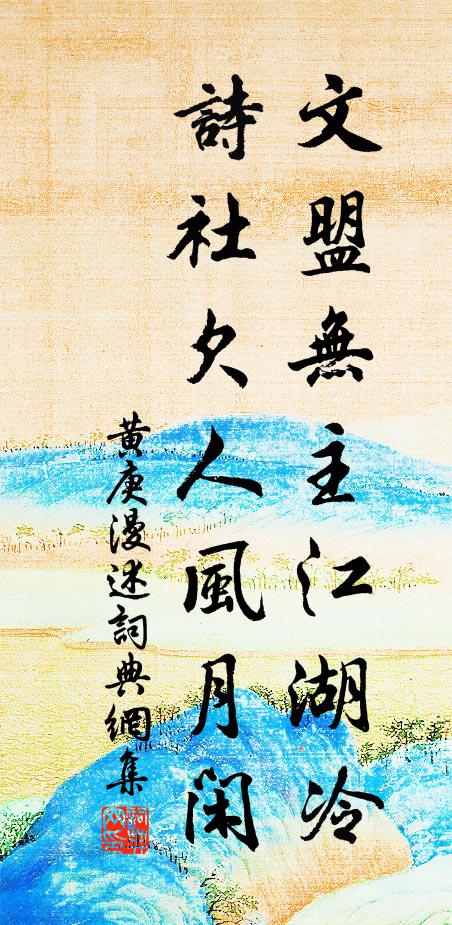 文盟無主江湖冷
詩社欠人風月閑
黃庚漫述詞典網集